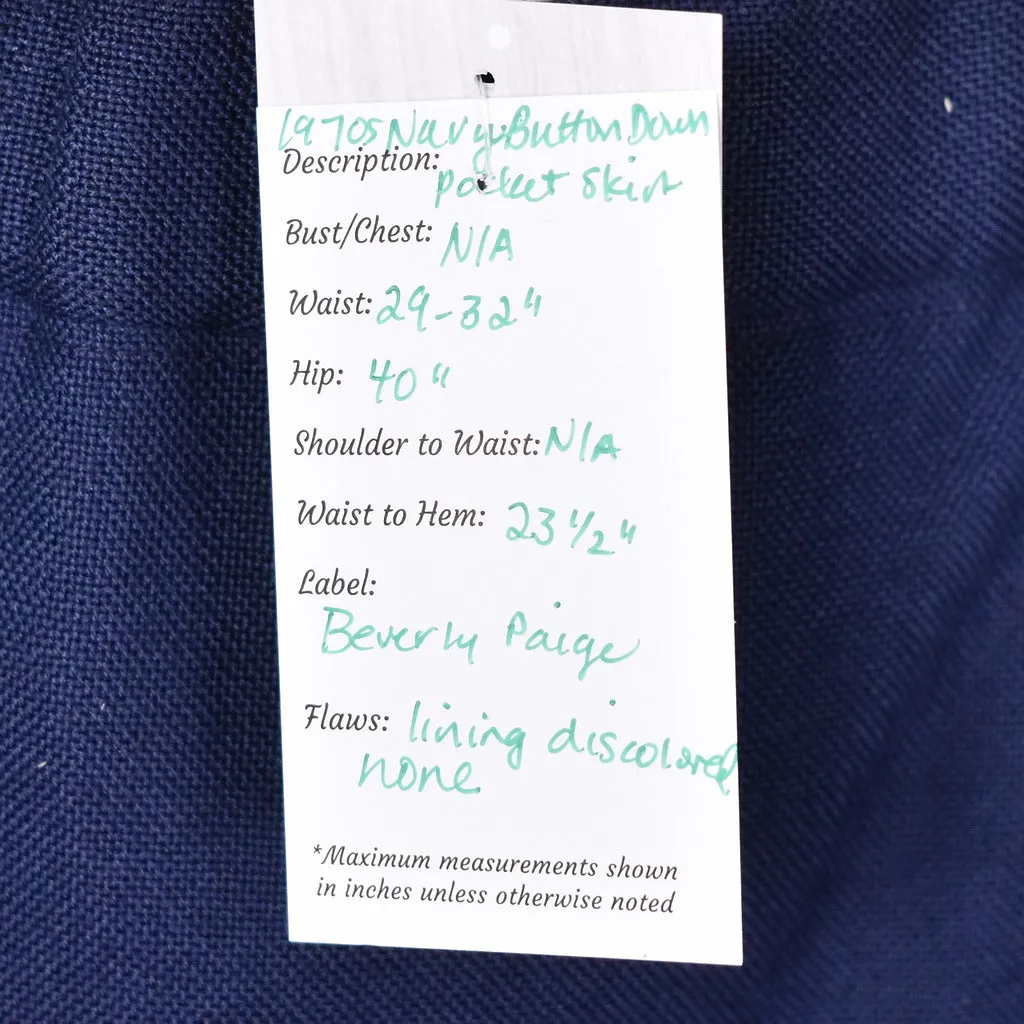 1970s Navy Button Down
Description: pocket skirt
Bust/Chest: N/A
Waist: 29-32"
Hip: 40"
Shoulder to Waist: N/A
Waist to Hem: 23 1/2"
Label:
Beverly Paige
Flaws: lining discolored
none
*Maximum measurements shown
in inches unless otherwise noted